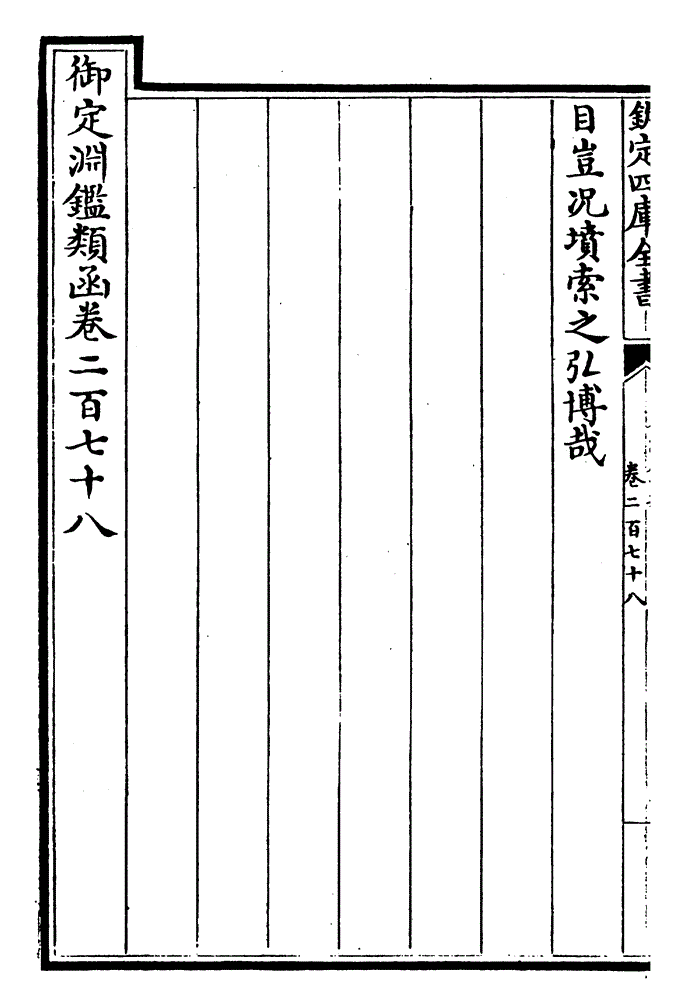 欽定四庫全書
卷二百七十八
目豈況墳索之弘博哉
御定淵鑑類函卷二百七十八